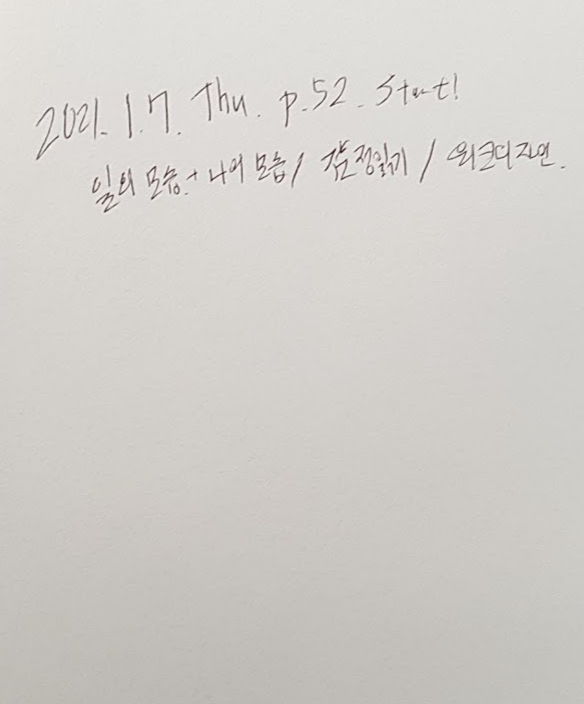 2021. 1. 7. Thu. p.52. Start!
일의 모습 + 나의 모습 / 감정읽기 / 워크디자인.